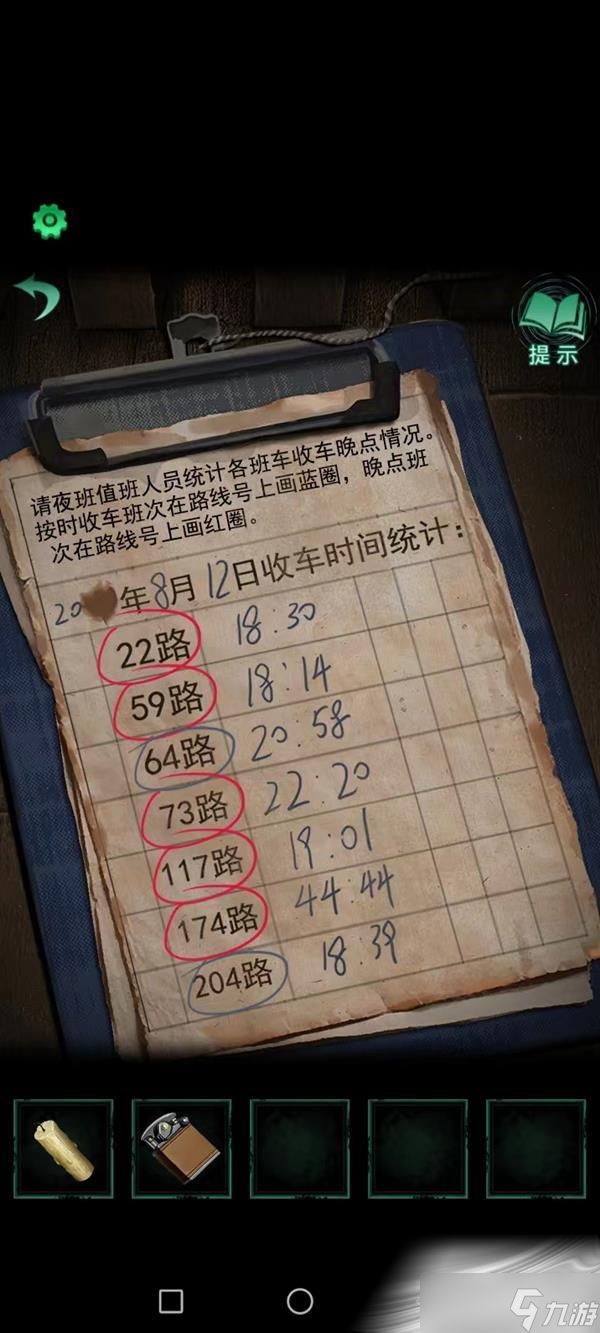 提示
请夜班值班人员统计各班车收车晚点情况。
按时收车班次在路线号上画蓝圈，晚点班
次在路线号上画红圈。
20 年8月12日收车时间统计：
22路 18:30
59路 18:14
64路 20:58
73路 22:20
117路 19:01
174路 44:44
204路 18:39
九游